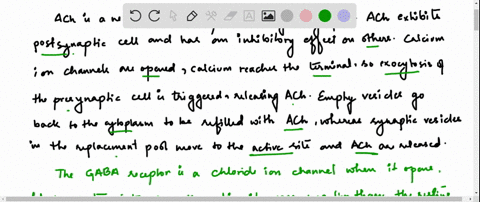 ACh is a ne ACh exhibits
postsynaptic cell and has an inhibitory effect on others. Calcium
ion channels are opened, calcium reaches the terminal, so exocytosis of
the presynaptic cell is triggered, releasing ACh. Empty vesicles go
back to the cytoplasm to be refilled with ACh, whereas synaptic vesicles
in the replacement pool move to the active site and ACh are released.
The GABA receptor is a chloride ion channel when it opens,